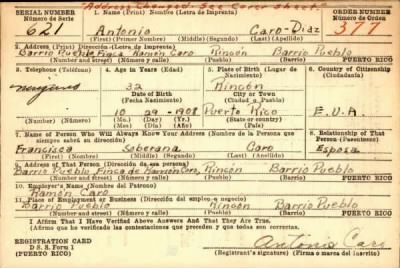 Address Changed. See Cover Sheet.
SERIAL NUMBER
Número de Serie
1. Name (Print) Nombre (Letra de Imprenta)
ORDER NUMBER
Número de Orden
621 Antonio Caro-Diaz 377
(First) (Primer Nombre) (Middle) (Segundo) (Last) (Apellido)
2. Address (Print) Dirección (Letra de Imprenta)
Barrio Pueblo, Finca Ramón Caro, Rincón Barrio Pueblo
(Number and street) (Número y calle) (Town) (Pueblo) PUERTO RICO
3. Telephone (Teléfono)
4. Age in Years (Edad)
5. Place of Birth (Lugar de Nacimiento)
6. Country of Citizenship (Ciudadanía)
ninguno
32
Rincón
Date of Birth
(Fecha Nacimiento)
City or Town
(Ciudad o Pueblo)
10 29 1908 Puerto Rico E.U.A.
(Mo.) (Day) (Yr.)
(Mes) (Día) (Año)
(State or country)
7. Name of Person Who Will Always Know Your Address (Nombre de la Persona que siempre sabrá su dirección)
8. Relationship of That Person (Parentesco)
Francisca Soberana Caro Esposa
(First) (Nombre) (Middle) (Segundo) (Last) (Apellido)
9. Address of That Person (Dirección de esa persona)
Barrio Pueblo, Finca de Ramón Caro, Rincón Barrio Pueblo
(Number and street) (Número y calle) (Town) (Pueblo) PUERTO RICO
10. Employer's Name (Nombre del Patrono)
Ramón Caro
11. Place of Employment or Business (Dirección del empleo o negocio)
Barrio Pueblo Rincón Barrio Pueblo
(Number and street) (Número y calle) (Town) (Pueblo) PUERTO RICO
I Affirm That I Have Verified Above Answers And That They Are True.
Afirmo que he verificado las contestaciones que preceden y que todas son correctas.
REGISTRATION CARD
D. S. S. Form 1
(PUERTO RICO)
Antonio Caro
(Registrant's signature) (Firma o marca del inscrito)